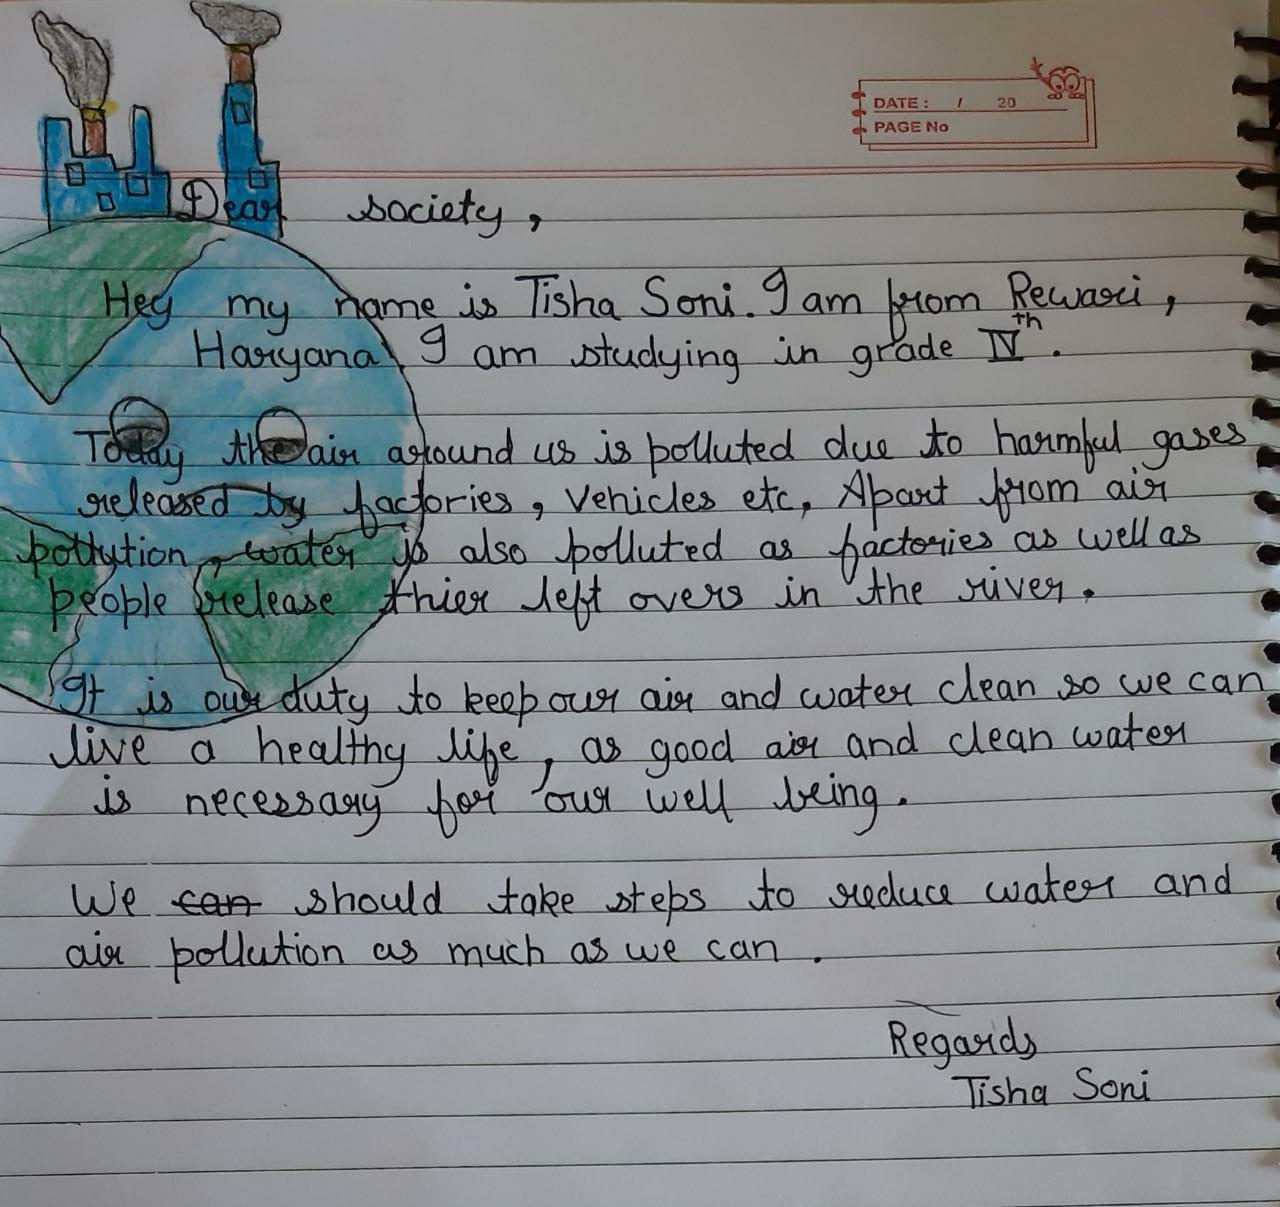 DATE: / 20
PAGE No
Dear society,
Hey my name is Tisha Soni. I am from Rewari,
Haryana I am studying in grade IVth.
Today the air around us is polluted due to harmful gases
released by factories, vehicles etc, Apart from air
pollution, water is also polluted as factories as well as
people release thier left overs in the river.
It is our duty to keep our air and water clean so we can
live a healthy life, as good air and clean water
is necessary for our well being.
We can should take steps to reduce water and
air pollution as much as we can.
Regards
Tisha Soni